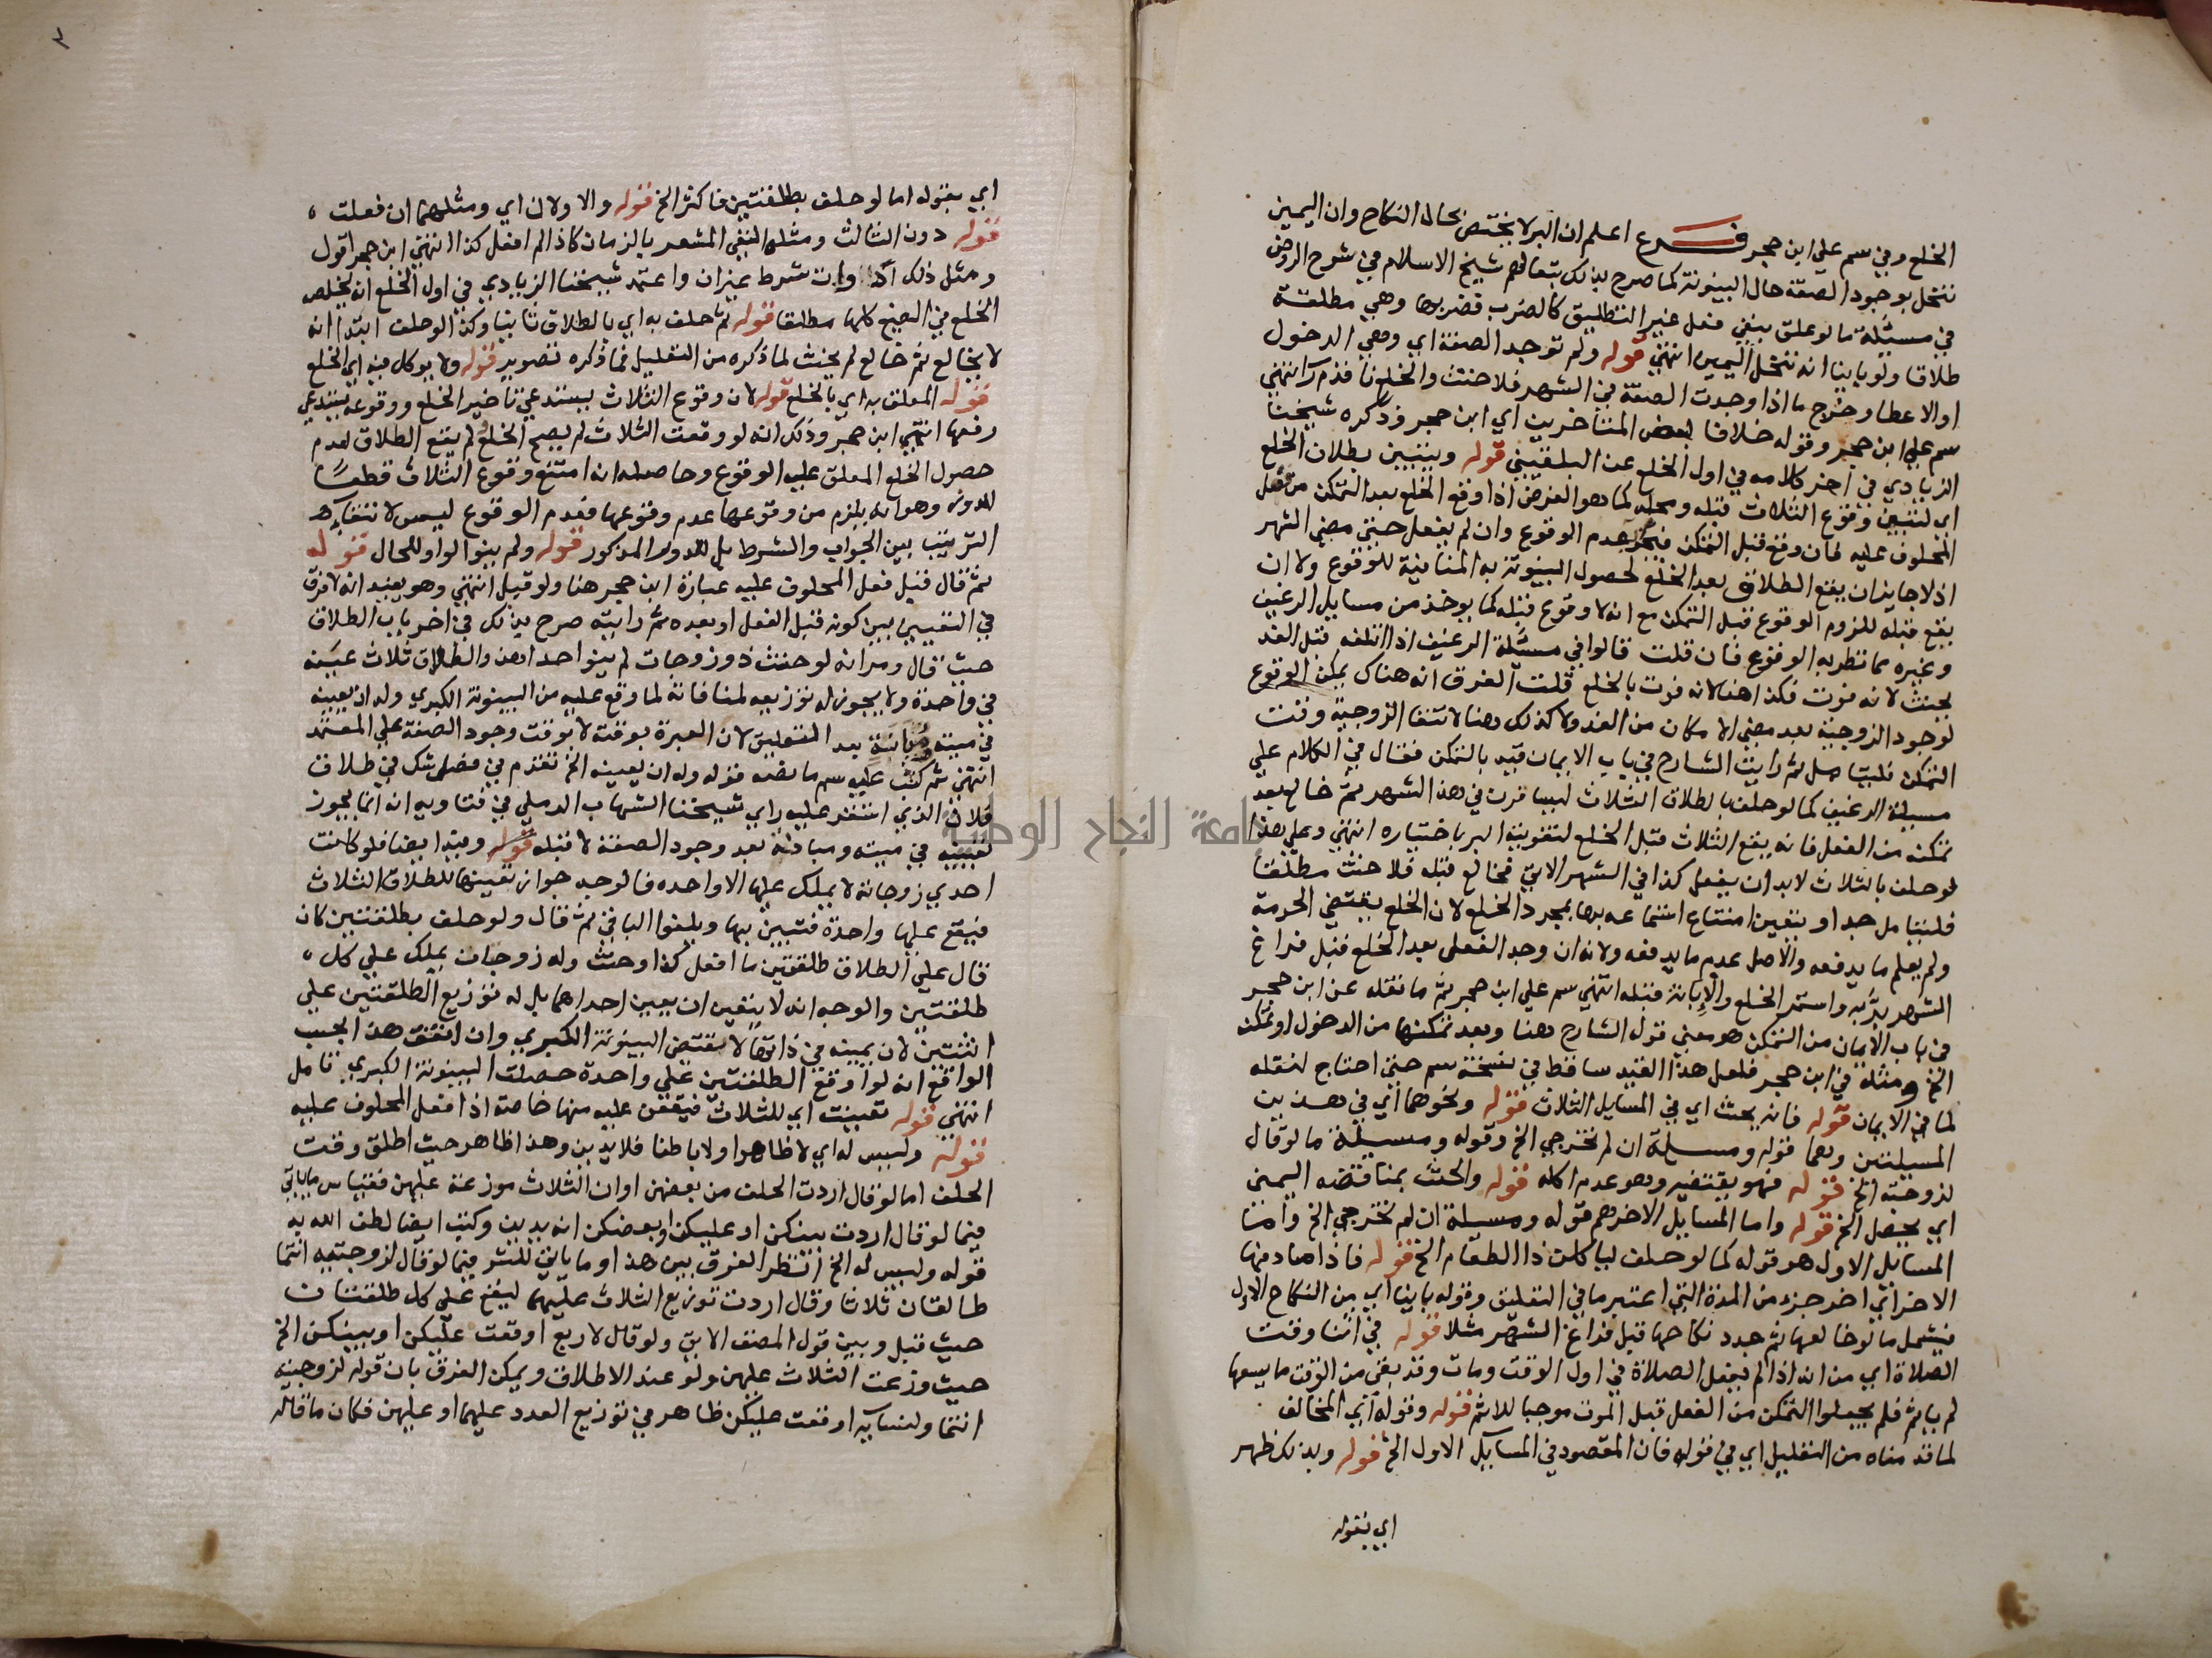 الخلع وفي سم علي ابن حجر فرع اعلم ان البر لا يختص بحال النكاح وان اليمين
تنحل بوجود الصفة حال البينونة كما صرح بذلك تبعا لهم شيخ الاسلام في شرح الروض
في مسيلة ما لو علق بنفي فعل غير التطليق كالضرب فضربها وهي مطلقة
طلاقا ولو باينا انه تنحل اليمين انتهي قوله ولم توجد الصفة اي وهي الدخول
او الاعطا وخرج ما اذا وجدت الصفة في الشهر فلا حنث والخلع نافذ مر انتهي
سم علي ابن حجر وقوله خلافا لبعض المتاخرين اي ابن حجر وذكره شيخنا
الزيادي في اخر كلامه في اول الخلع عن البلقيني قوله ويتبين بطلان الخلع
اي لتبين وقوع الثلاث قبله ومحله كما هو الفرض اذا وقع الخلع بعد التمكن من فعل
المحلوف عليه فان وقع قبل التمكن فيتجه عدم الوقوع وان لم يفعل حتي مضي الشهر
اذ لا جايز ان يقع الطلاق بعد الخلع لحصول البينونة به المنافية للوقوع ولا ان
يقع قبله للزوم الوقوع قبل التمكن مع انه لا وقوع قبله كما يوخذ من مسايل الرغيف
وغيره مما تنظر به الوقوع فان قلت قالوا في مسئلة الرغيف اذا اتلفه قبل الغد
يحنث لانه فوت فكذا هنا لانه فوت بالخلع قلت الفرق انه هناك يمكن الوقوع
لوجود الزوجية بعد مضي الامكان من الغد ولا كذلك هنا لانتفا الزوجية وقت
التمكن فليتامل ثم رايت الشارح في باب الايمان قيد بالتمكن فقال في الكلام علي
مسيلة الرغيف كما لو حلف بالطلاق الثلاث ليسافرن في هذا الشهر ثم خالع بعد
تمكنه من الفعل فانه يقع الثلاث قبل الخلع لتفويته البر باختياره انتهي وعلي هذا
لو حلف بالثلاث لابد ان يفعل كذا في الشهر الاتي فخالع قبله فلا حنث مطلقا
فليتامل جدا ويتعين امتناع استمتاعه بها بمجرد الخلع لان الخلع يقتضي الحرمة
ولم يعلم ما يدفعه والاصل عدم ما يدفعه ولانه ان وجد الفعل بعد الخلع قبل فراغ
الشهر بر به واستمر الخلع والابانة قبله انتهي سم علي ابن حجر ثم ما نقله عن ابن حجر
في باب الايمان من التمكن هو معني قول الشارح هنا وبعد تمكنها من الدخول او تمكن
الخ ومثله في ابن حجر فلعل هذا القيد ساقط في نسخة سم حتي احتاج لنقله
لما في الايمان قوله فانه يحنث اي في المسايل الثلاث قوله ونحوهما اي في هذين
المسيلتين وهما قوله ومسيلة ان لم تخرجي الخ وقوله ومسيلة ما لو قال
لزوجته الخ قوله فهو يقتضيه وهو عدم اكله قوله والحنث بمناقضة اليمين
اي يحصل الخ قوله واما المسايل الاخر وهم قوله ومسيلة ان لم تخرجي الخ وامنا
المسايل الاول هو قوله كما لو حلف لياكلن ذا الطعام الخ قوله فاذا صادفها
الاخر اي اخر جزء من المدة التي اعتبرها في التعليق وقوله باينا اي من النكاح الاول
فيشمل ما لو خالعها ثم جدد نكاحها قبل فراغ الشهر مثلا قوله في اثنا وقت
الصلاة اي من انه اذا لم يفعل الصلاة في اول الوقت ومات وقد بقي من الوقت ما يسعها
لم ياثم فلم يجعلوا التمكن من الفعل قبل الموت موجبا للاثم قوله وقوله اي المخالف
لما قدمناه من التعليل اي في قوله فان المقصود في المسايل الاول الخ قوله وبذلك ظهر
اي بقوله
اي بقوله اما لو حلف بطلقتين فاكثر الخ قوله والاولان اي ومثلهما ان فعلت
قوله دون الثالث ومثلها النفي المشعر بالزمان كاذا لم افعل كذا انتهي ابن حجر اقول
ومثل ذلك وان شرط غير ان واعتمد شيخنا الزيادي في اول الخلع انه يخلص
الخلع في الصيغ كلها مطلقا قوله ثم حلف به اي بالطلاق ثانيا وكذا لو حلف ابتدا انه
لا يخالع ثم خالع لم يحنث لما ذكره من التعليل فما ذكره تصوير قوله ولا يوكل فيه اي الخلع
قوله المعلق به اي بالخلع قوله لان وقوع الثلاث يستدعي تاخير الخلع ووقوعه يستدعي
رفعها انتهي ابن حجر وذلك انه لو وقعت الثلاث لم يصح الخلع ولم يقع الطلاق لعدم
حصول الخلع المعلق عليه الوقوع وحاصله انه امتنع وقوع الثلاث قطعا
للدور وهو انه يلزم من وقوعها عدم وقوعها فعدم الوقوع ليس لانتفا
الترتيب بين الجواب والشرط بل للدور المذكور قوله ولم ينو الواو للحال قوله
ثم قال قبل فعل المحلوف عليه عبارة ابن حجر هنا ولو قيل انتهي وهو يفيد انه لا فرق
في التعيين بين كونه قبل الفعل او بعده ثم رايته صرح بذلك في اخر باب الطلاق
حيث قال ومر انه لو حنث ذو زوجات لم ينو احداهن والطلاق ثلاث عينه
في واحدة ولا يجوز له توزيعه لمنافاته لما وقع عليه من البينونة الكبري وله ان يعينه
في ميتة وباينة بعد التعليق لان العبرة بوقته لا بوقت وجود الصفة علي المعتمد
انتهي ثم كتب عليه سم ما نصه قوله وله ان يعينه الخ تقدم في فصل شك في طلاق
فلان الذي استقر عليه راي شيخنا الشهاب الرملي في فتاويه انه انما يجوز
تعيينه في ميتة ومبانة بعد وجود الصفة لا قبله قوله وفيه ايضا فلو كانت
احدي زوجاته لا يملك عليها الا واحده فالوجه جواز تعيينها للطلاق الثلاث
فيقع عليها واحدة فتبين بها ويلغوا الباقي ثم قال ولو حلف بطلقتين كان
قال علي الطلاق طلقتين ما افعل كذا وحنث وله زوجات يملك علي كل
طلقتين والوجه انه لا يتعين ان يعين احداهما بل له توزيع الطلقتين علي
اثنتين لان يمينه في ذاتها لا يقتضي البينونة الكبري وان اتفق هذا بحسب
الواقع انه لو اوقع الطلقتين علي واحدة حصلت البينونة الكبري تامل
انتهي قوله تعينت اي للثلاث فيقعن عليه منها خاصة اذا فعل المحلوف عليه
قوله وليس له اي لا ظاهرا ولا باطنا فلا يدين وهذا ظاهر حيث اطلق وقت
الحلف اما لو قال اردت الحلف من بعضهن او ان الثلاث موزعة عليهن فقياس ما ياتي
فيما لو قال اردت بينكن او عليكن او بعضكن انه يدين وكتب ايضا لطف الله به
قوله وليس له الخ انظر الفرق بين هذا وما ياتي للنشر فيما لو قال لزوجتيه انتما
طالقان ثلاثا وقال اردت توزيع الثلاث عليهما ليقع علي كل طلقتان
حيث قبل وبين قول المصنف الاتي ولو قال لاربع اوقعت عليكن او بينكن الخ
حيث وزعت الثلاث عليهن ولو عند الاطلاق ويمكن الفرق بان قوله لزوجتيه
انتما ولنسايه اوقعت عليكن ظاهر في توزيع العدد عليهما او عليهن فكان ما قاله
جامعة النجاح الوطنية